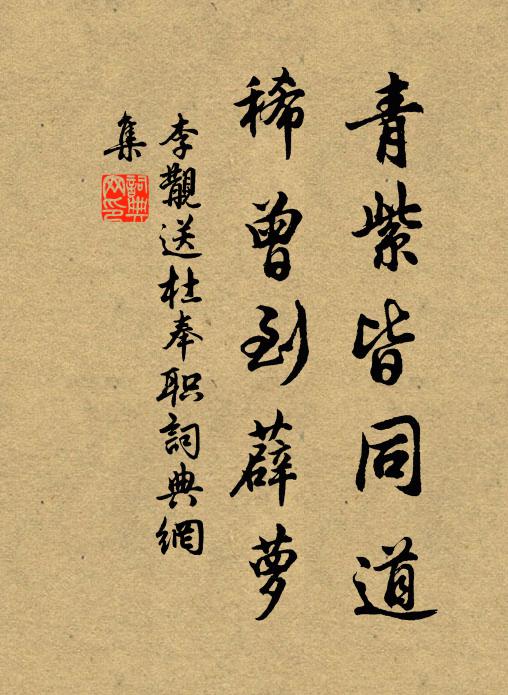 青紫皆同道
稀曾到薜萝
李觏送杜奉职词典網
集
詞典
网印